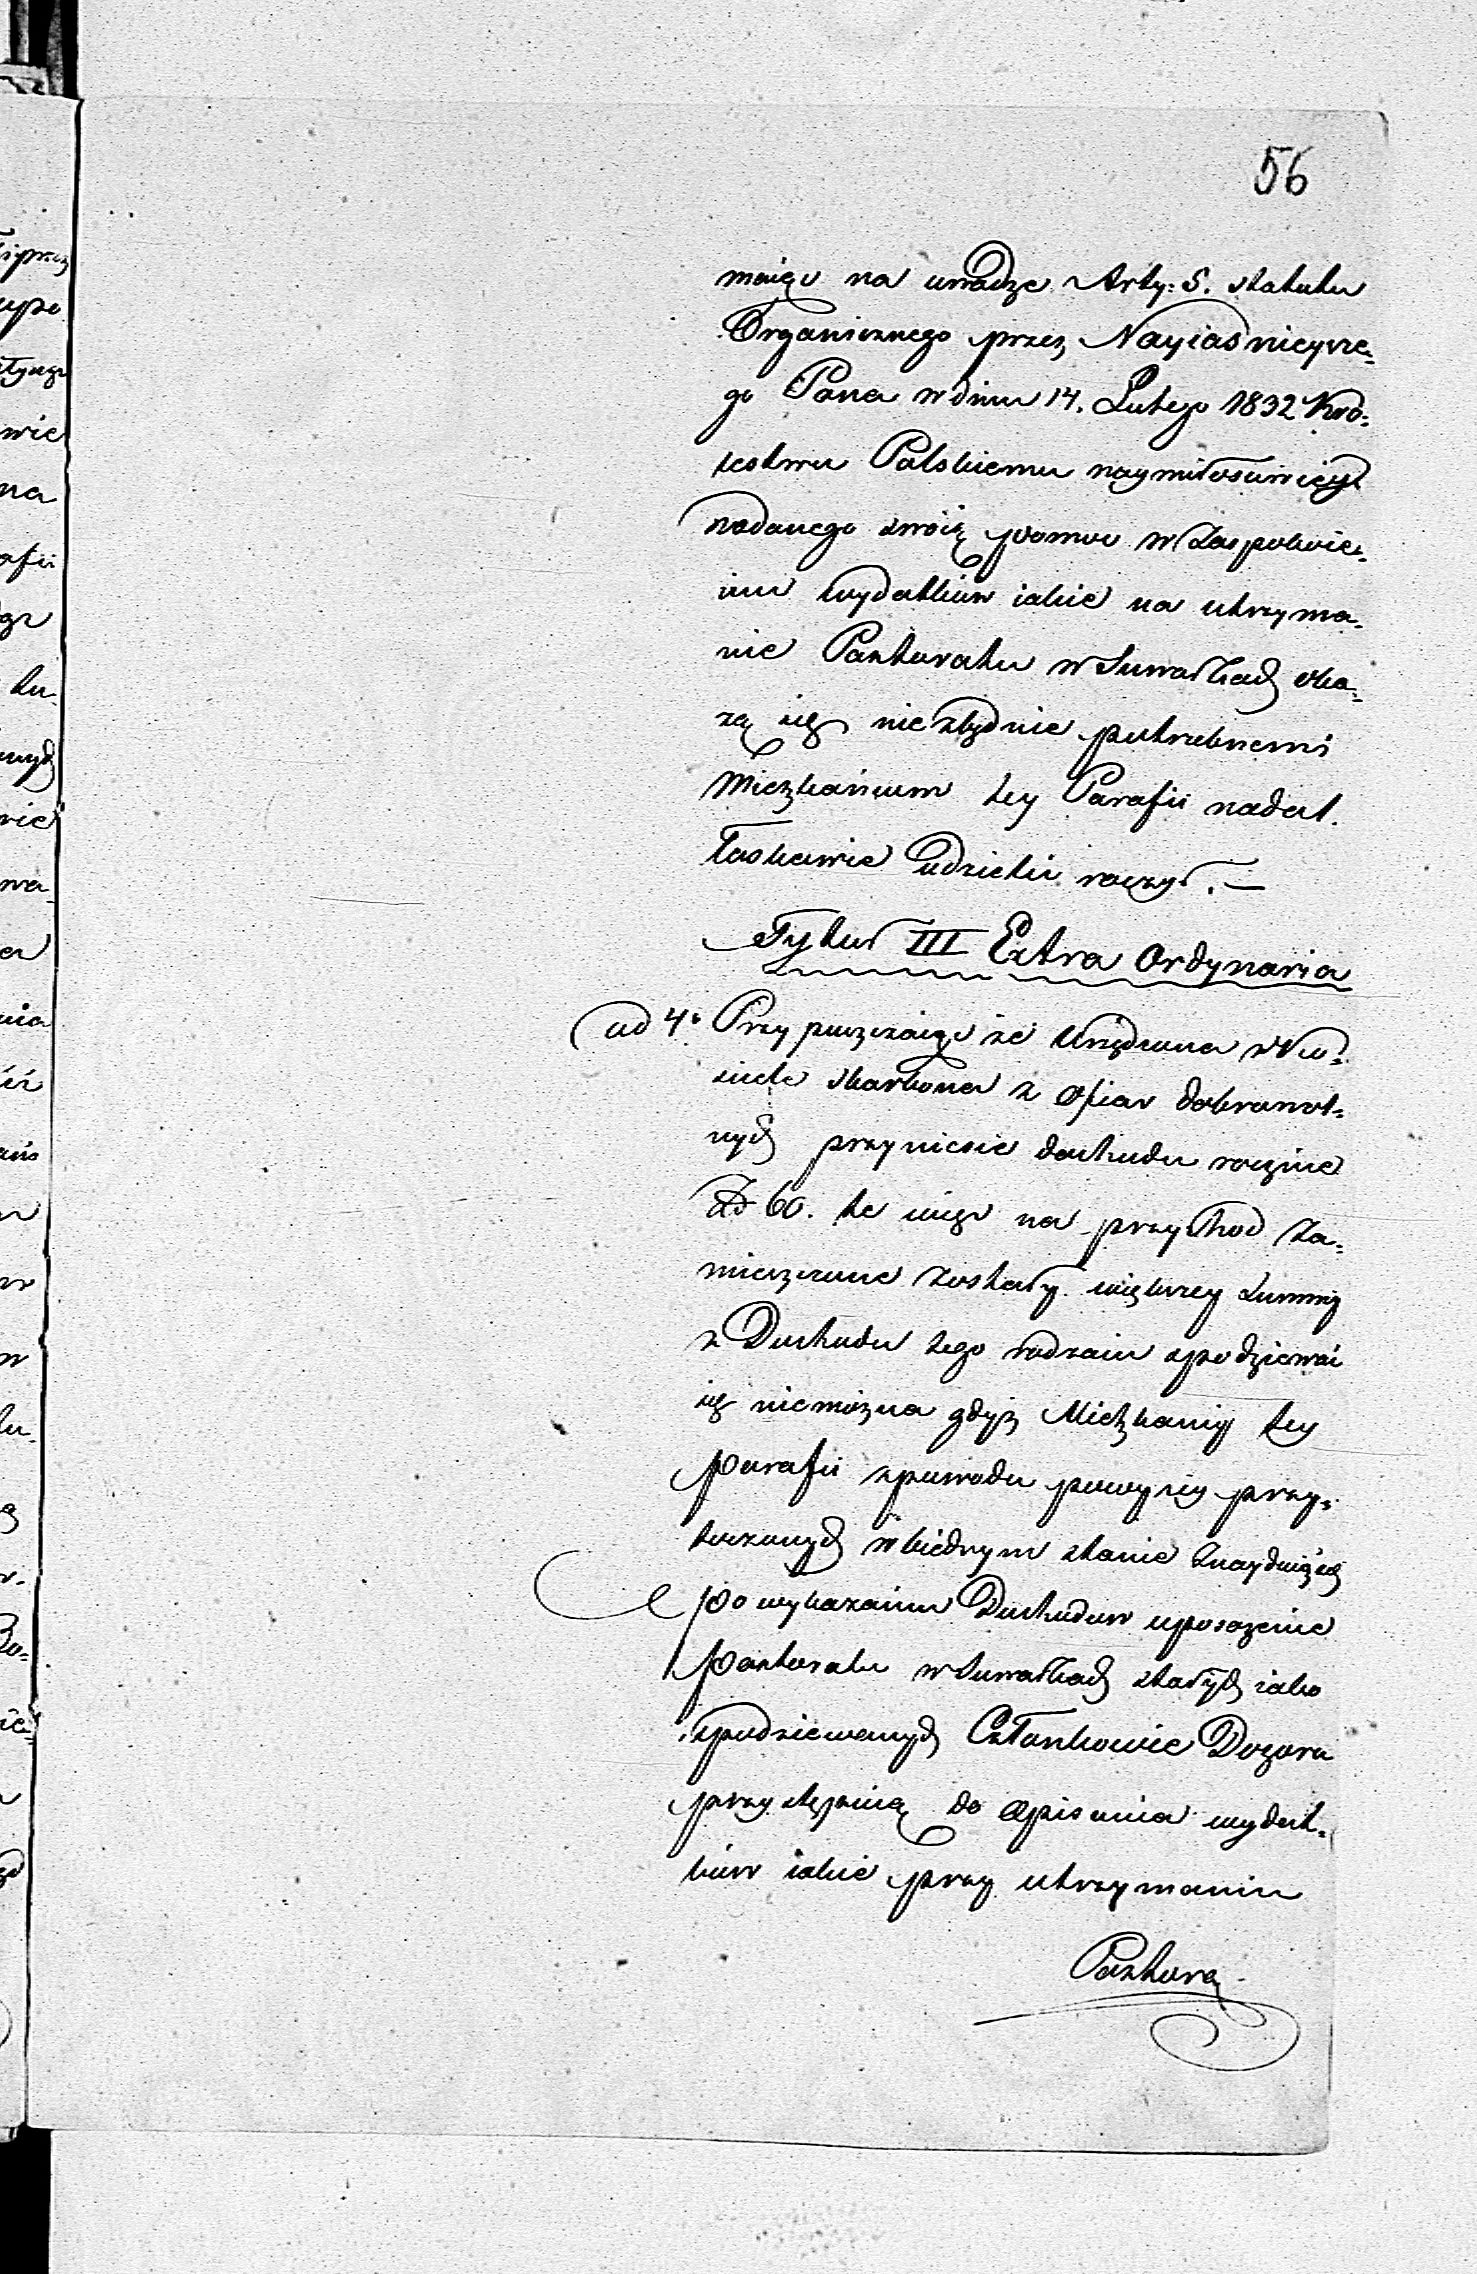 56
maiąc na uwadze Arty: 5. statutu
Organicznego przez Nayiaśnieysze-
go Pana w dniu 14. Lutego 1832 Kró-
lestwu Polskiemu naymiłościwiey
nadanego swoią pomoc w Zaspokoie-
niu wydatków iakie na utrzyma-
nie Pastoratu w Suwałkach oka-
żą się niezbędnie potrzebnemi
Mieszkańcom tey Parafii nadal
łaskawie udzielić raczył. —
Tytuł III Extra Ordynaria
ad 4o Przypuszczaiąc że Urządzona w Ko-
ściele skarbona z ofiar dobrowol-
nych przyniesie dochodu rocznie
Zł 60. te więc na przychod Za-
mieszczone zostały. większey Summy
z Dochodu tego rodzaiu spodziewać
się niemożna gdyż Mieszkańcy tey
parafii zpowodu powyżey przy-
toczonych w biednym stanie Znayduią się
po wykazaniu Dochodow uposażenie
pastoratu w Suwałkach stałych iako
spodziewanych Członkowie Dozoru
przystępuią do Opisania wydat-
ków iakie przy utrzymaniu
Pastora